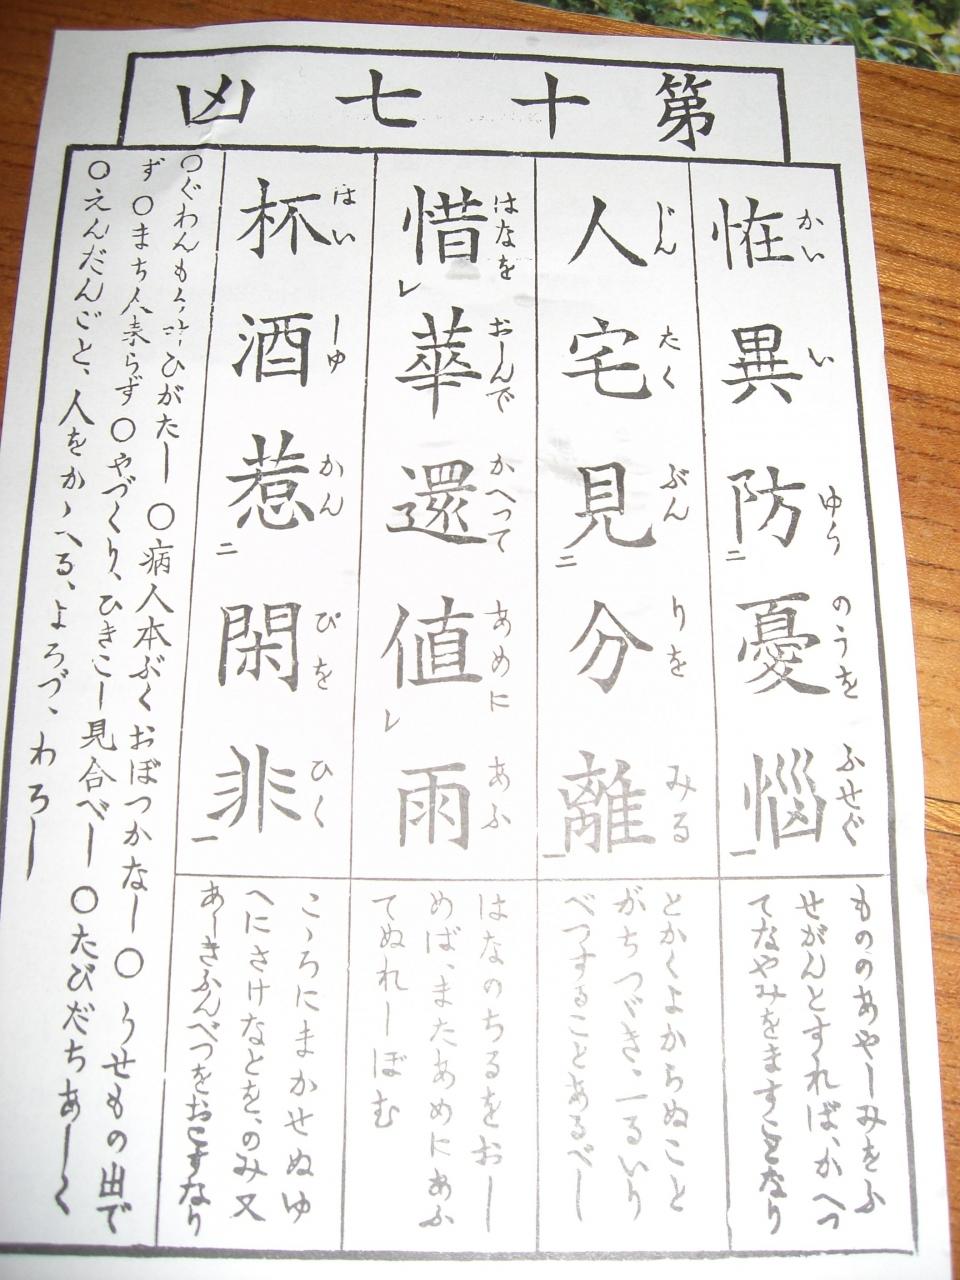 第十七凶
怪異防憂悩
かいい ゆうのうを ふせぐ
二 一
人宅見分離
じんたく ぶんりを みる
二 一
惜華還値雨
はなを おしんで かへって あめに あふ
レ レ
杯酒惹閑非
はいしゆ かんぴを ひく
二 一
もののあやしみをふ
せがんとすれば、かへつ
てなやみをますことなり
とかくよからぬこと
がちつゞき、一るいり
べつすることあるべし
はなのちるをおし
めば、またあめにあふ
てぬれしぼむ
こゝろにまかせぬゆ
へにさけなとを、のみ又
あしきふんべつをおこすなり
○ぐわんもう ひがたし ○病人本ぶくおぼつかなし ○うせもの出で
ず ○まち人来らず ○やづくり、ひきこし見合べし ○たびだちあしく
○えんだんごと、人をかゝへる、よろづ、わろし